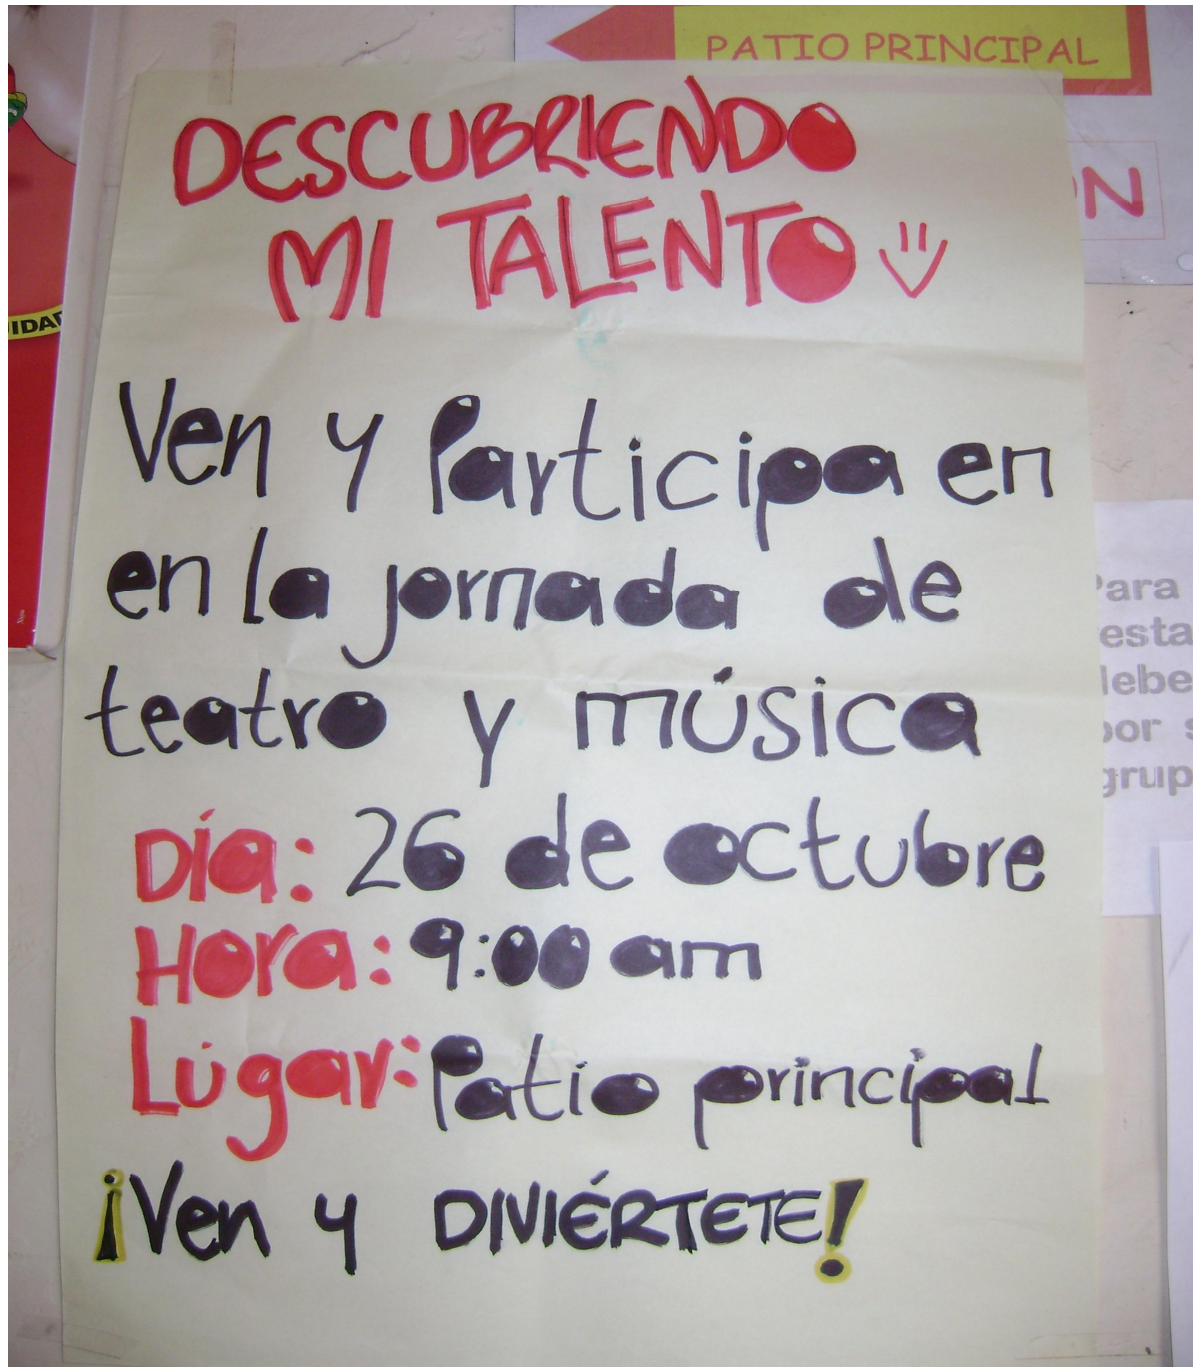 PATIO PRINCIPAL
DESCUBRIENDO
MI TALENTO
Ven y Participa en
en la jornada de
teatro y música
Día: 26 de octubre
Hora: 9:00 am
Lúgar: Patio principal
¡Ven y DIVIÉRTETE!
Para
esta
debe
por s
grup